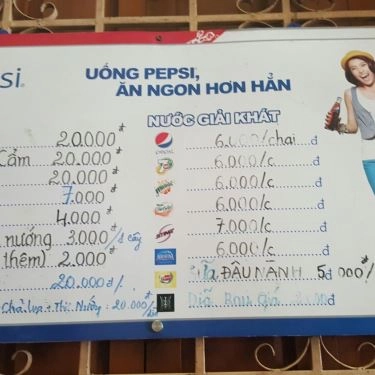 si
UỐNG PEPSI,
ĂN NGON HƠN HẲN
20.000đ
Cẩm 20.000đ
20.000đ
7.000đ
4.000đ
nướng 3.000đ/cây
thêm) 2.000đ
20.000đ/
Chả lụa + Thịt Nướng: 20.000đ/
NƯỚC GIẢI KHÁT
6.000/chai đ
6.000/c đ
6.000/c đ
6.000/c đ
7.000/c đ
6.000/c đ
ĐẬU NÀNH 5000/
Dĩa Rau Giá đ